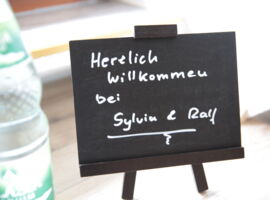 Herzlich
willkommen
bei
Sylvia & Ralf